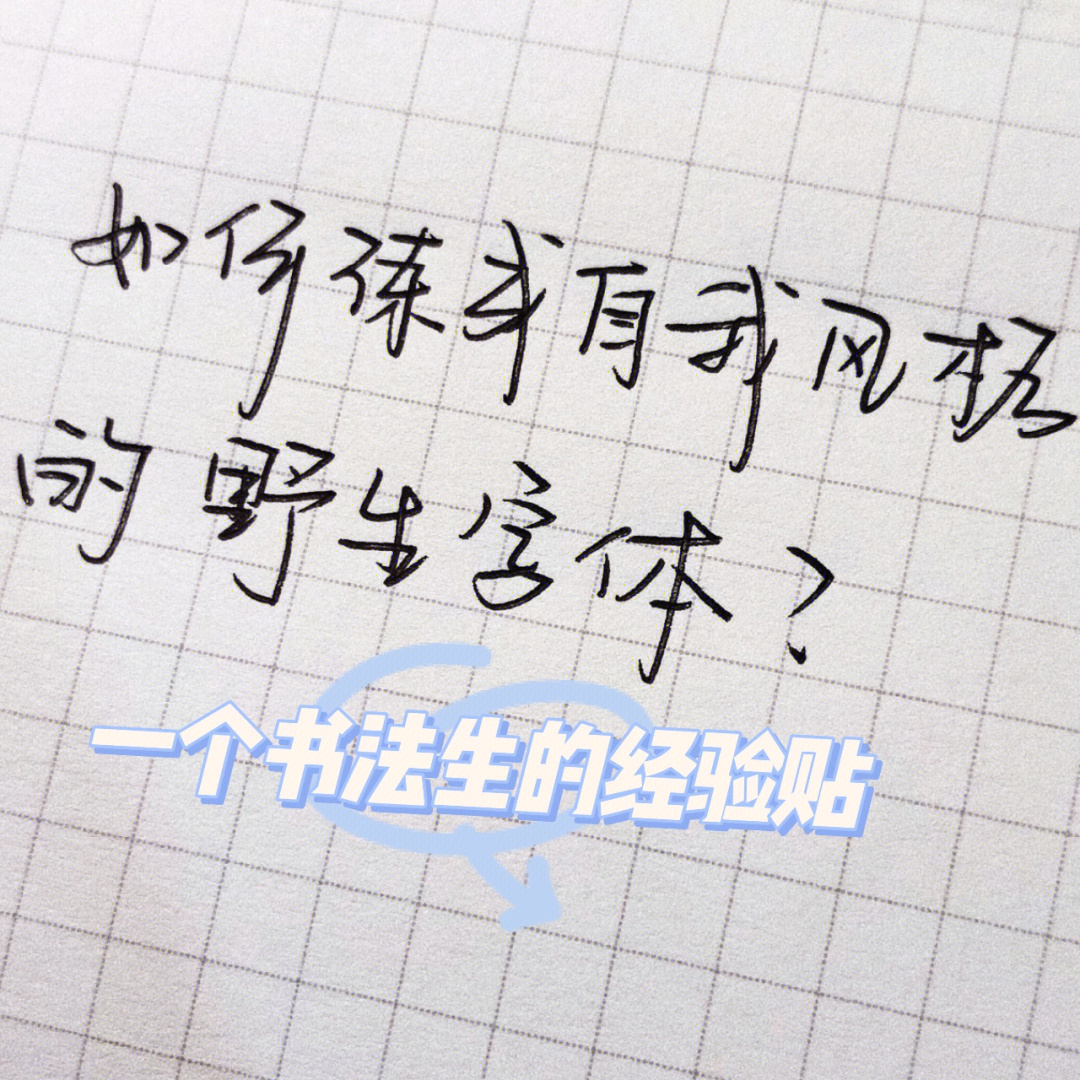 如何练成自我风格
的野生字体？
一个书法生的经验贴